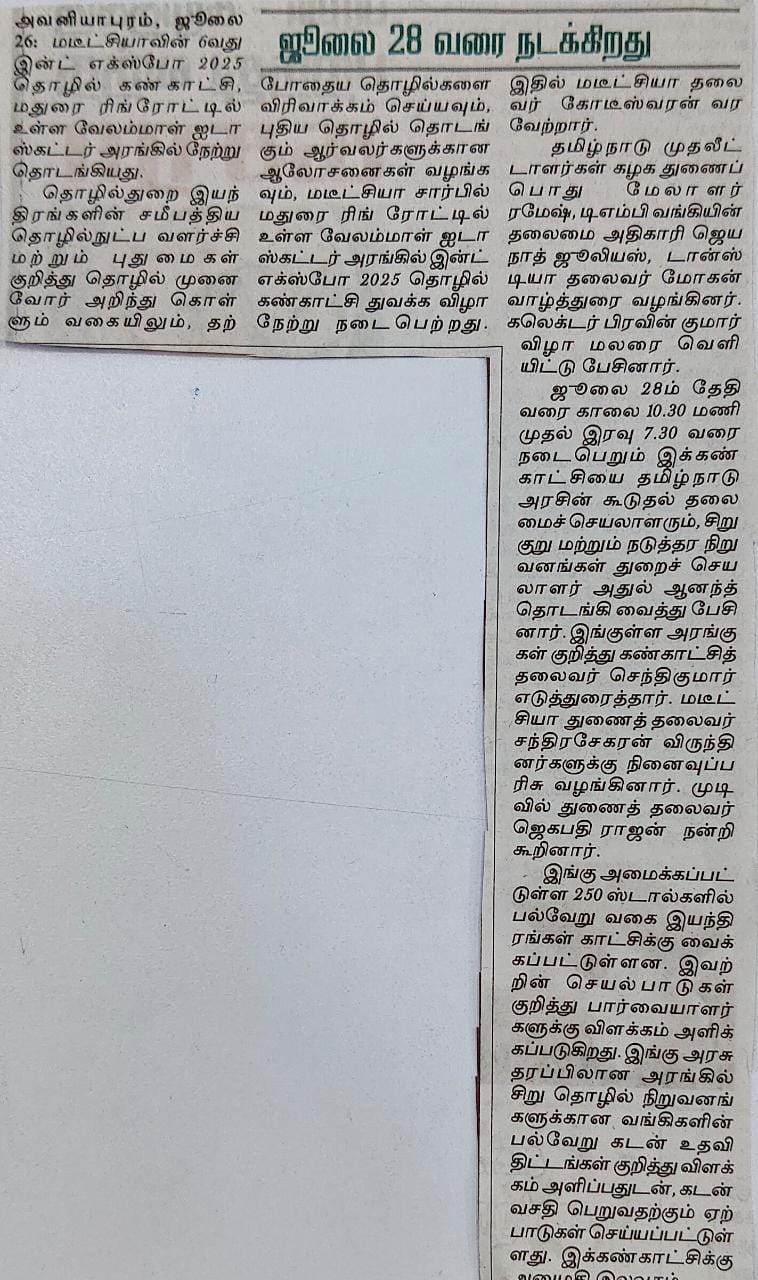 ஜூலை 28 வரை நடக்கிறது
அவனியாபுரம், ஜூலை
26: மடீட்சியாவின் 6வது
இன்ட் எக்ஸ்போ 2025
தொழில் கண்காட்சி,
மதுரை ரிங்ரோட்டில்
உள்ள வேலம்மாள் ஐடா
ஸ்கட்டர் அரங்கில் நேற்று
தொடங்கியது.
தொழில்துறை இயந்
திரங்களின் சமீபத்திய
தொழில்நுட்ப வளர்ச்சி
மற்றும் புதுமைகள்
குறித்து தொழில் முனை
வோர் அறிந்து கொள்
ளும் வகையிலும், தற்
போதைய தொழில்களை
விரிவாக்கம் செய்யவும்,
புதிய தொழில் தொடங்
கும் ஆர்வலர்களுக்கான
ஆலோசனைகள் வழங்க
வும், மடீட்சியா சார்பில்
மதுரை ரிங் ரோட்டில்
உள்ள வேலம்மாள் ஐடா
ஸ்கட்டர் அரங்கில் இன்ட்
எக்ஸ்போ 2025 தொழில்
கண்காட்சி துவக்க விழா
நேற்று நடைபெற்றது.
இதில் மடீட்சியா தலை
வர் கோடீஸ்வரன் வர
வேற்றார்.
தமிழ்நாடு முதலீட்
டாளர்கள் கழக துணைப்
பொது மேலாளர்
ரமேஷ், டிஎம்பி வங்கியின்
தலைமை அதிகாரி ஜெய
நாத் ஜூலியஸ், டான்ஸ்
டியா தலைவர் மோகன்
வாழ்த்துரை வழங்கினர்.
கலெக்டர் பிரவின் குமார்
விழா மலரை வெளி
யிட்டு பேசினார்.
ஜூலை 28ம் தேதி
வரை காலை 10.30 மணி
முதல் இரவு 7.30 வரை
நடைபெறும் இக்கண்
காட்சியை தமிழ்நாடு
அரசின் கூடுதல் தலை
மைச் செயலாளரும், சிறு
குறு மற்றும் நடுத்தர நிறு
வனங்கள் துறைச் செய
லாளர் அதுல் ஆனந்த்
தொடங்கி வைத்து பேசி
னார். இங்குள்ள அரங்கு
கள் குறித்து கண்காட்சித்
தலைவர் செந்திகுமார்
எடுத்துரைத்தார். மடீட்
சியா துணைத் தலைவர்
சந்திரசேகரன் விருந்தி
னர்களுக்கு நினைவுப்ப
ரிசு வழங்கினார். முடி
வில் துணைத் தலைவர்
ஜெகபதி ராஜன் நன்றி
கூறினார்.
இங்கு அமைக்கப்பட்
டுள்ள 250 ஸ்டால்களில்
பல்வேறு வகை இயந்தி
ரங்கள் காட்சிக்கு வைக்
கப்பட்டுள்ளன. இவற்
றின் செயல்பாடுகள்
குறித்து பார்வையாளர்
களுக்கு விளக்கம் அளிக்
கப்படுகிறது. இங்கு அரசு
தரப்பிலான அரங்கில்
சிறு தொழில் நிறுவனங்
களுக்கான வங்கிகளின்
பல்வேறு கடன் உதவி
திட்டங்கள் குறித்து விளக்
கம் அளிப்பதுடன், கடன்
வசதி பெறுவதற்கும் ஏற்
பாடுகள் செய்யப்பட்டுள்
ளது. இக்கண்காட்சிக்கு
அனுமதி இலவசம்.